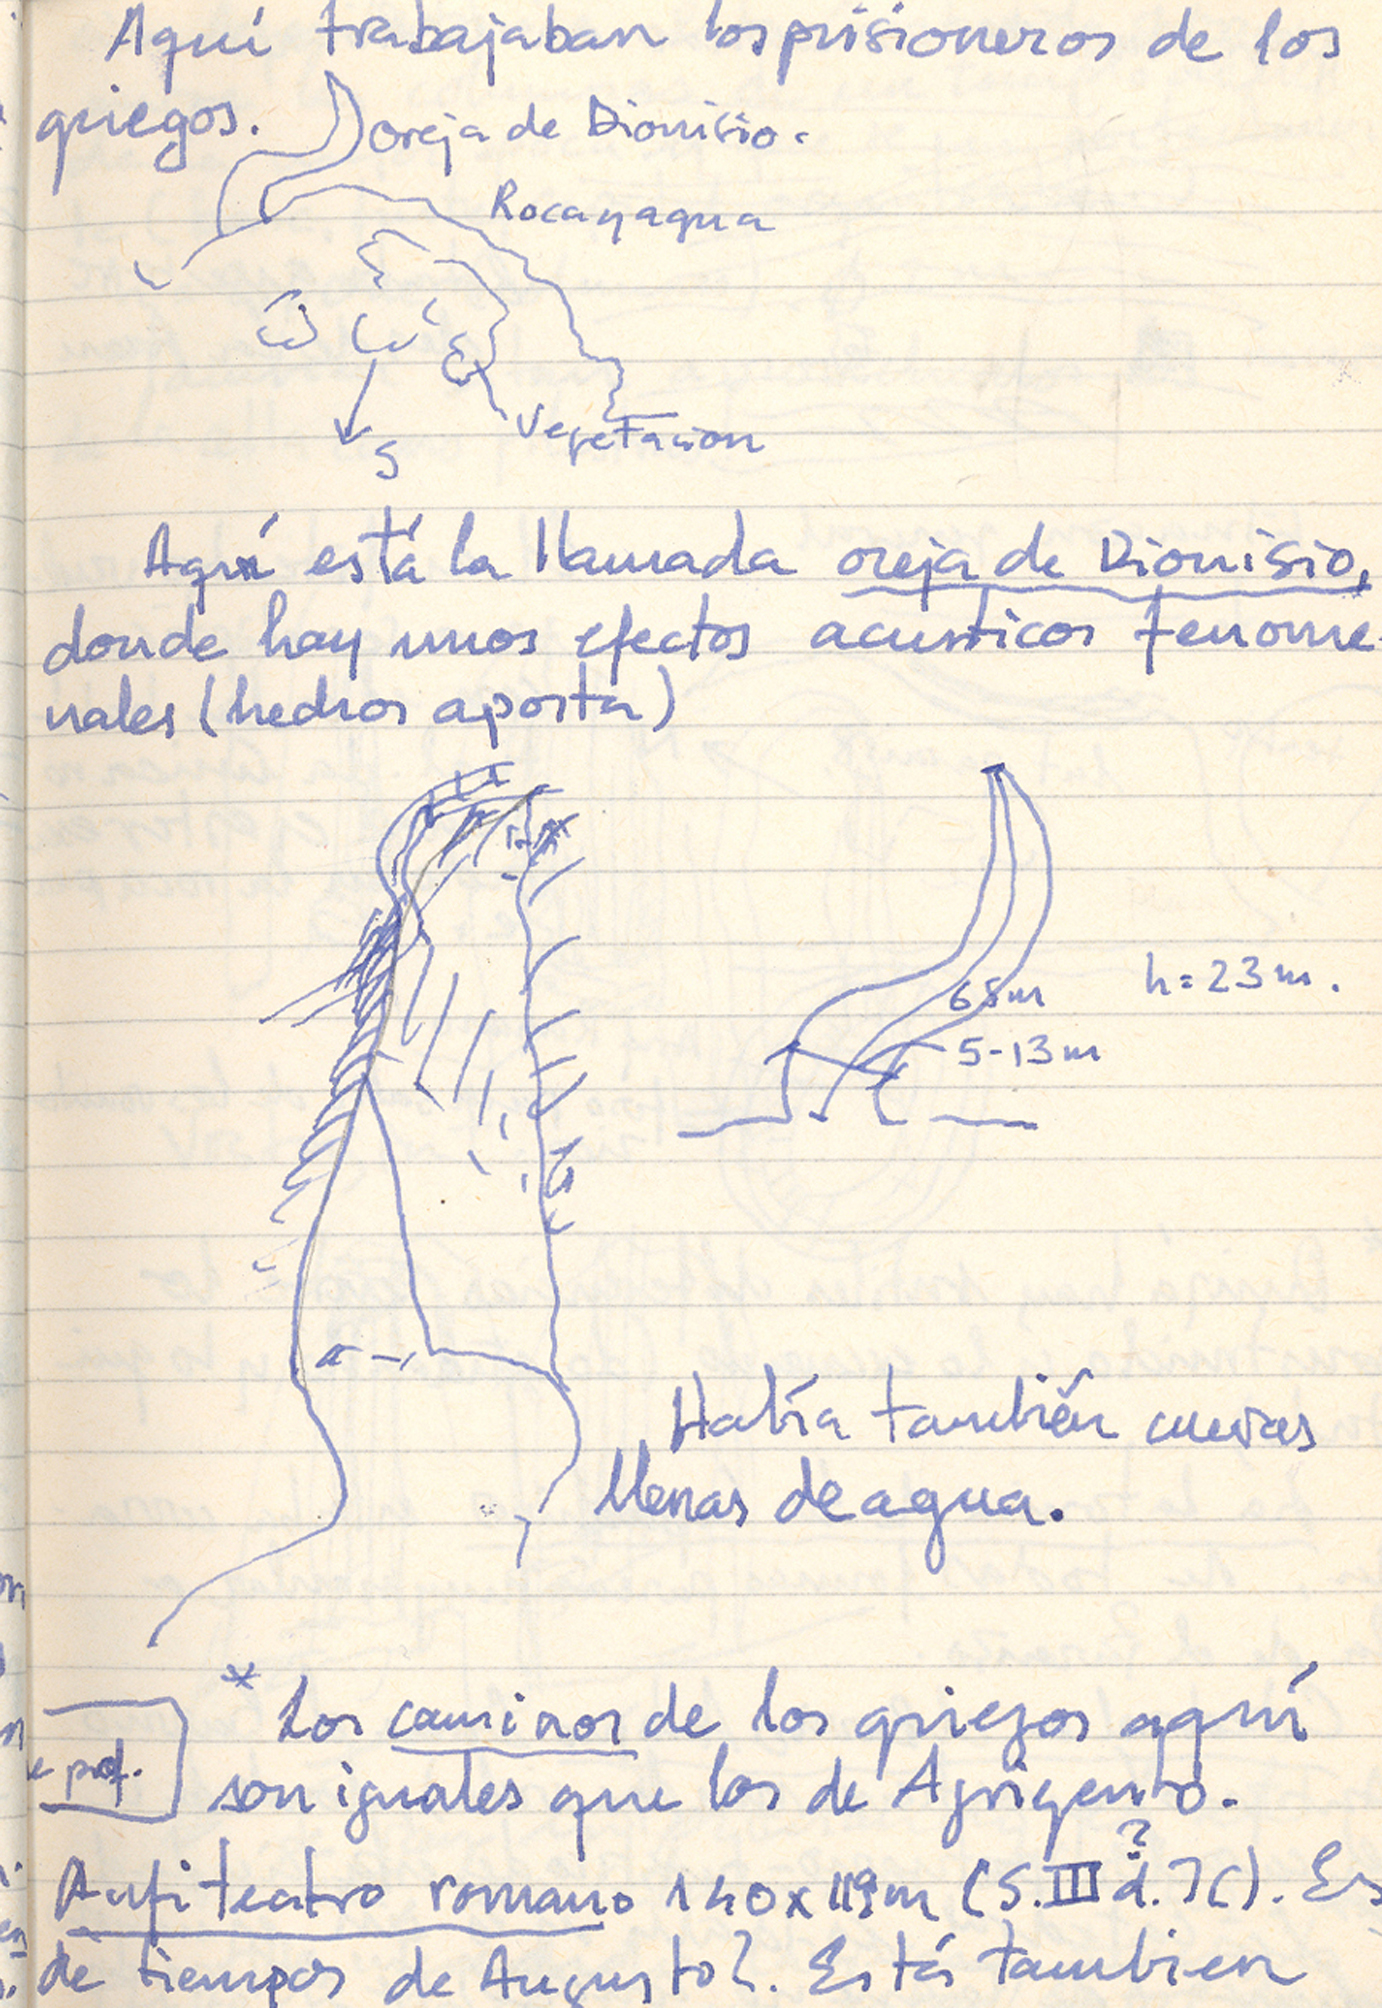 Aquí trabajaban los prisioneros de los
griegos.
oreja de Dionisio.
Roca y agua
Vegetacion
S
Aquí está la llamada oreja de Dionisio,
donde hay unos efectos acusticos fenome-
nales (hechos aposta)
65m
h=23m.
5-13m
Había también cuevas
llenas de agua.
* Los caminos de los griegos aquí
prof.
son iguales que los de Agrigento.
?
Anfiteatro romano 140x119m (S.III d.JC). Es
de tiempos de Augusto?. Está tambien